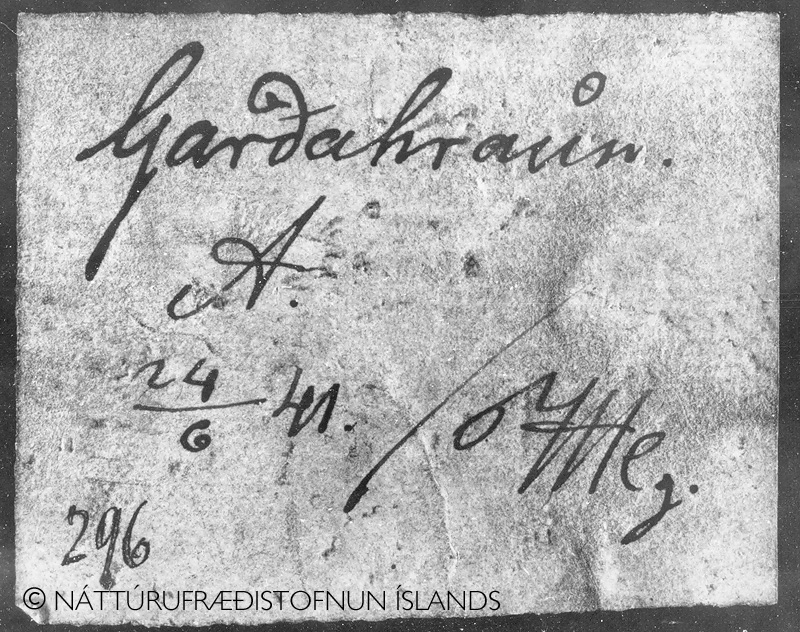 Garðahraun.
A.
24/6 41.
296
© NÁTTÚRUFRÆÐISTOFNUN ÍSLANDS